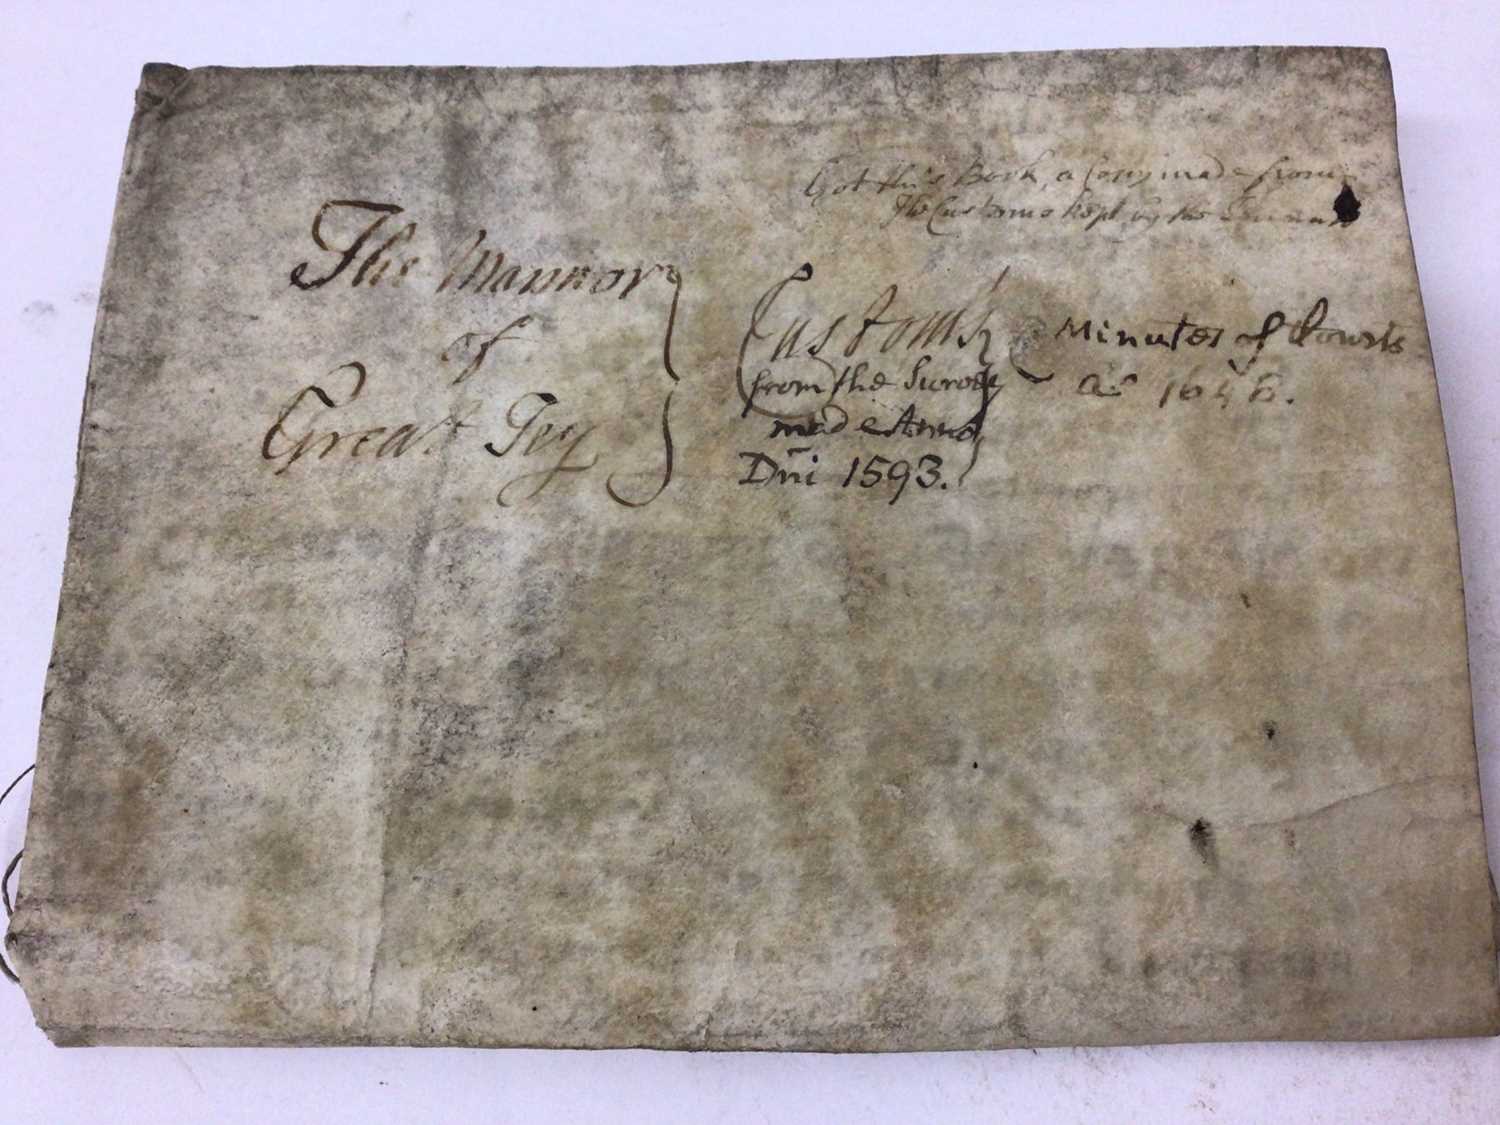 Got this Book, a Copy made from
The Customs kept by the
The Mannor
of
Great Tey
Customs
from the Survey
made Anno
Dni 1593.
Minutes of Courts
a° 1658.